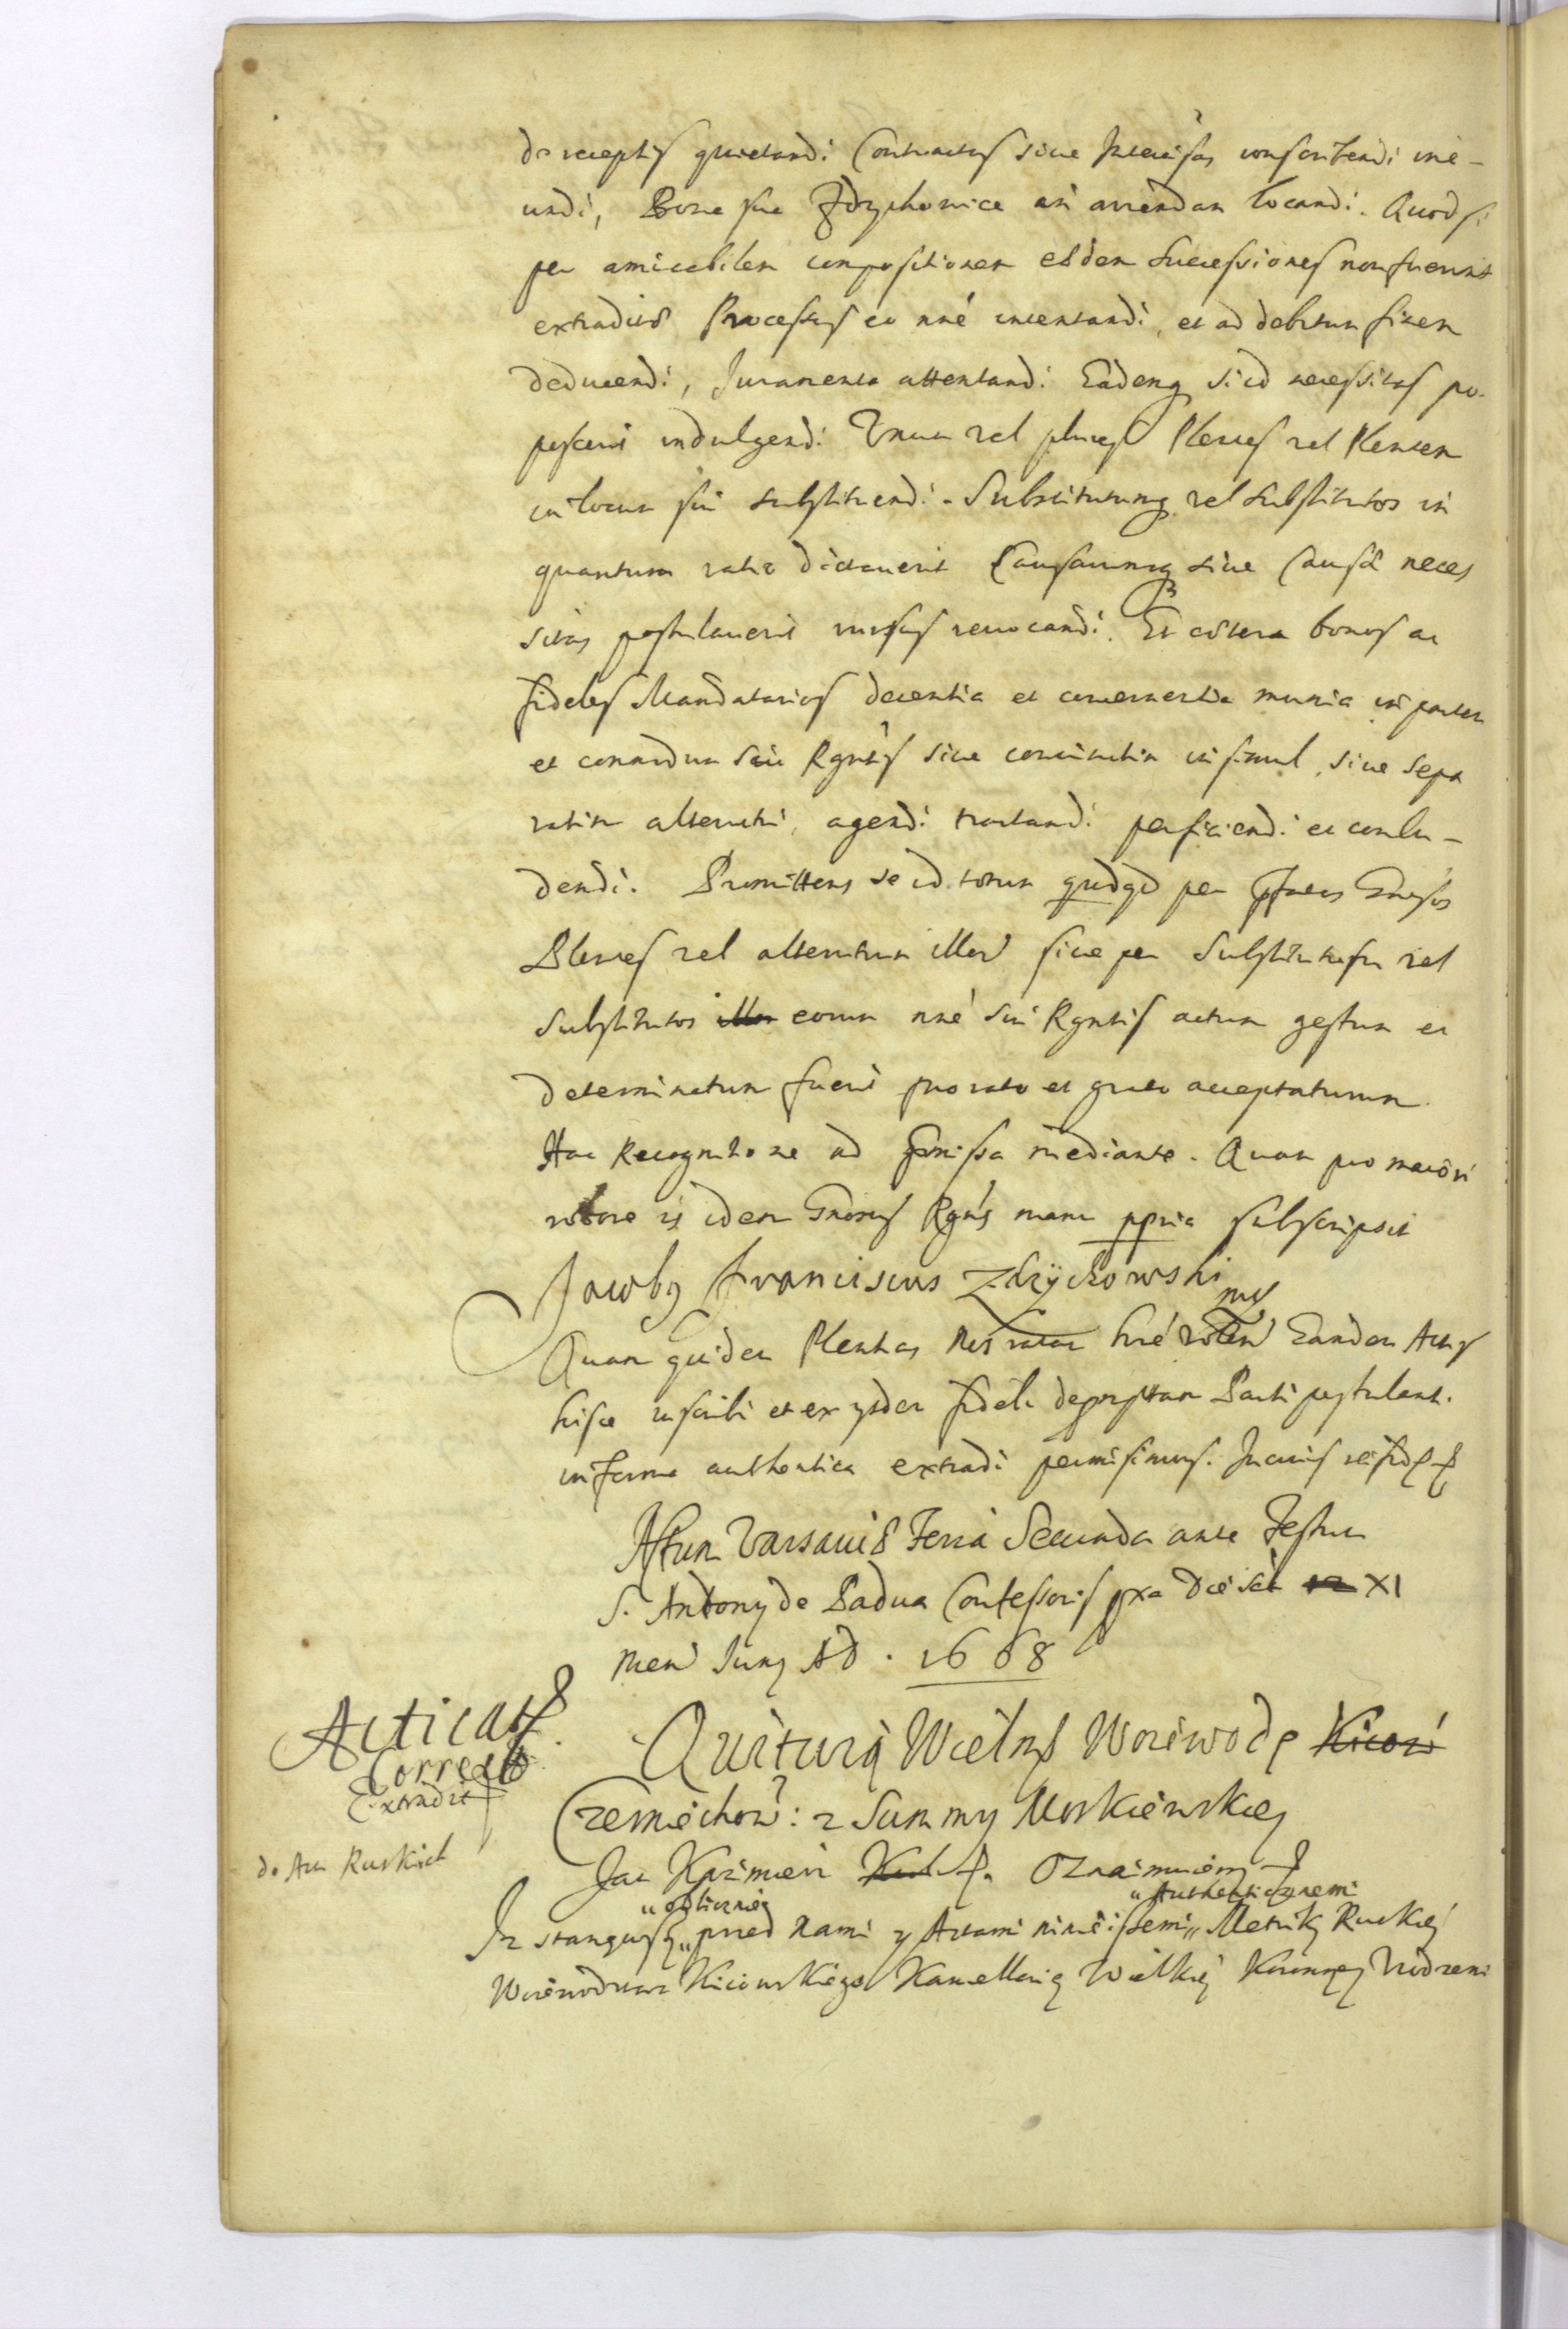 de receptis quietandi Contractus siue Intercisas conscribendi ine-
undi, Bona sua Zdzychowice in arendam locandi. Quod si
per amicabilem compositionem eędem Successiones non fuerint
extraditę Processus eo nné intentandi, et ad debitum finem
deducendi, Juramenta attentandi Eademq si id necessitas po-
poscerit indulgendi Vnum vel plures Plenes vel Plenten
in locum sui substituendi. Substitutumq vel substitutos in
quantum ratio dictauerit Causarumq siue Causę neces
sitas postulauerit rursus reuocandi. Et cętera bonos ac
fideles Mandatarios decentia et concernentia munia in partem
et commodum Sui Rgntis siue coniunctim insimul, siue sepa
ratim alterutri, agendi tractandi perficiendi et conclu-
dendi. Promittens se id totum quidqd per pfatos Gnosos
Plenes vel alterutrum illor siue per Substitutum vel
Substitutos illor eorum nné Sui Rgntis actum gestum et
determinatum fuerit pro rato et grato accepturum.
Hac Recognitione ad pmissa mediante. Quam pro maiori
robore is idem Gnosus Rgns manu ppria subscripsit
Jacobus Franciscus Zdzÿchowski mp
Quam quidem Plenttas Nos ratam hné volen Eandem Actis
hisce inscribi et ex ysdem fideli depromptam Parti postulant.
in forma authentica extradi permisimus. In cuius rei fid
Actum Varsauię Feria Secunda ante Festum
S. Antony de Padua Confessoris pxa Die sct 12 XI
Mens Juny AD. 1668
Acticat
Correct
Extradit
Quituią Wielmę Woiewodę Kiiow
Czerniechow: z Summy Moskiewskiey
do Act Ruskich
Jan Kazimierz Oznaimuiemy
oblicznie Authenticznemi
Iz stanąwszy przed Nami y Actami ninieiszemi Metriki Ruskiey
Woiewodztwa Kiiowskiego Kancellariey Wielkiey Koronney Vrodzeni